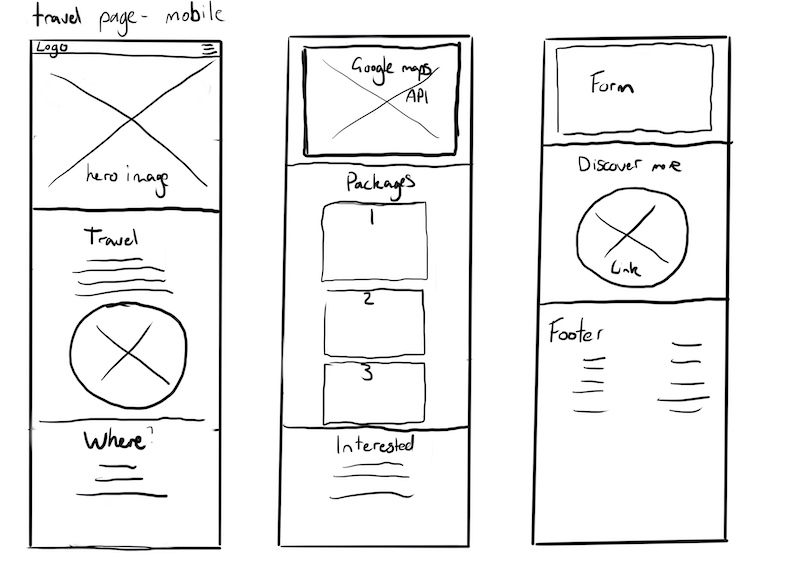 travel page- mobile
Logo
hero image
Travel
Where?
Google maps
API
Packages
1
2
3
Interested
Form
Discover more
Link
Footer